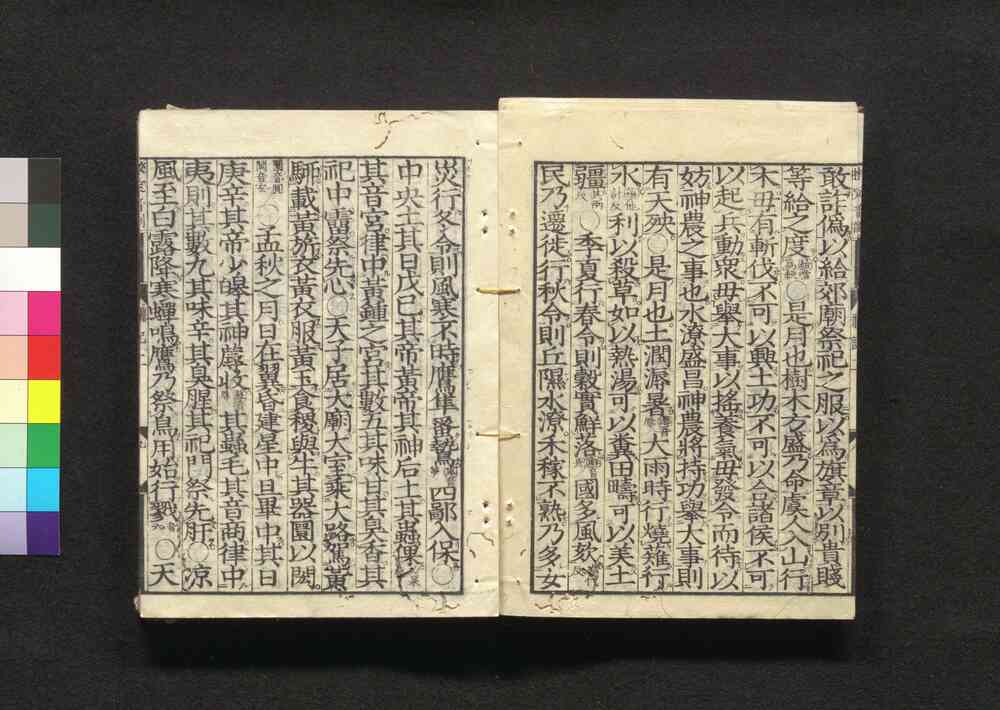 敢詐偽以給郊廟祭祀之服以爲旗章以別貴賤
等給之度○是月也樹木方盛乃命虞人入山行
木毋有斬伐不可以興土功不可以合諸侯不可
以起兵動衆毋舉大事以搖養氣毋發令而待以
妨神農之事也水潦盛昌神農將持功舉大事則
有天殃○是月也土潤溽暑大雨時行燒薙行
水利以殺草如以熱湯可以糞田疇可以美土
疆○季夏行春令則穀實鮮落國多風欬
民乃遷徙行秋令則丘隰水潦禾稼不熟乃多女
災行冬令則風寒不時鷹隼蚤鷙四鄙入保○
中央土其日戊己其帝黃帝其神后土其蟲倮
其音宮律中黃鍾之宮其數五其味甘其臭香其
祀中霤祭先心○天子居大廟大室乘大路駕黃
駵載黃旂衣黃衣服黃玉食稷與牛其器圜以閎
○孟秋之月日在翼昏建星中旦畢中其日
庚辛其帝少皞其神蓐收其蟲毛其音商律中
夷則其數九其味辛其臭腥其祀門祭先肝○涼
風至白露降寒蟬鳴鷹乃祭鳥用始行戮○天